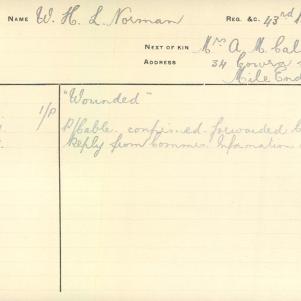 NAME W. H. L. Norman REG. &C. 43rd
NEXT OF KIN Mrs A. M. Cal
ADDRESS 34 Gower
Mile End
"Wounded"
1/P P/Cable confirmed forwarded
Reply from Commr. Information